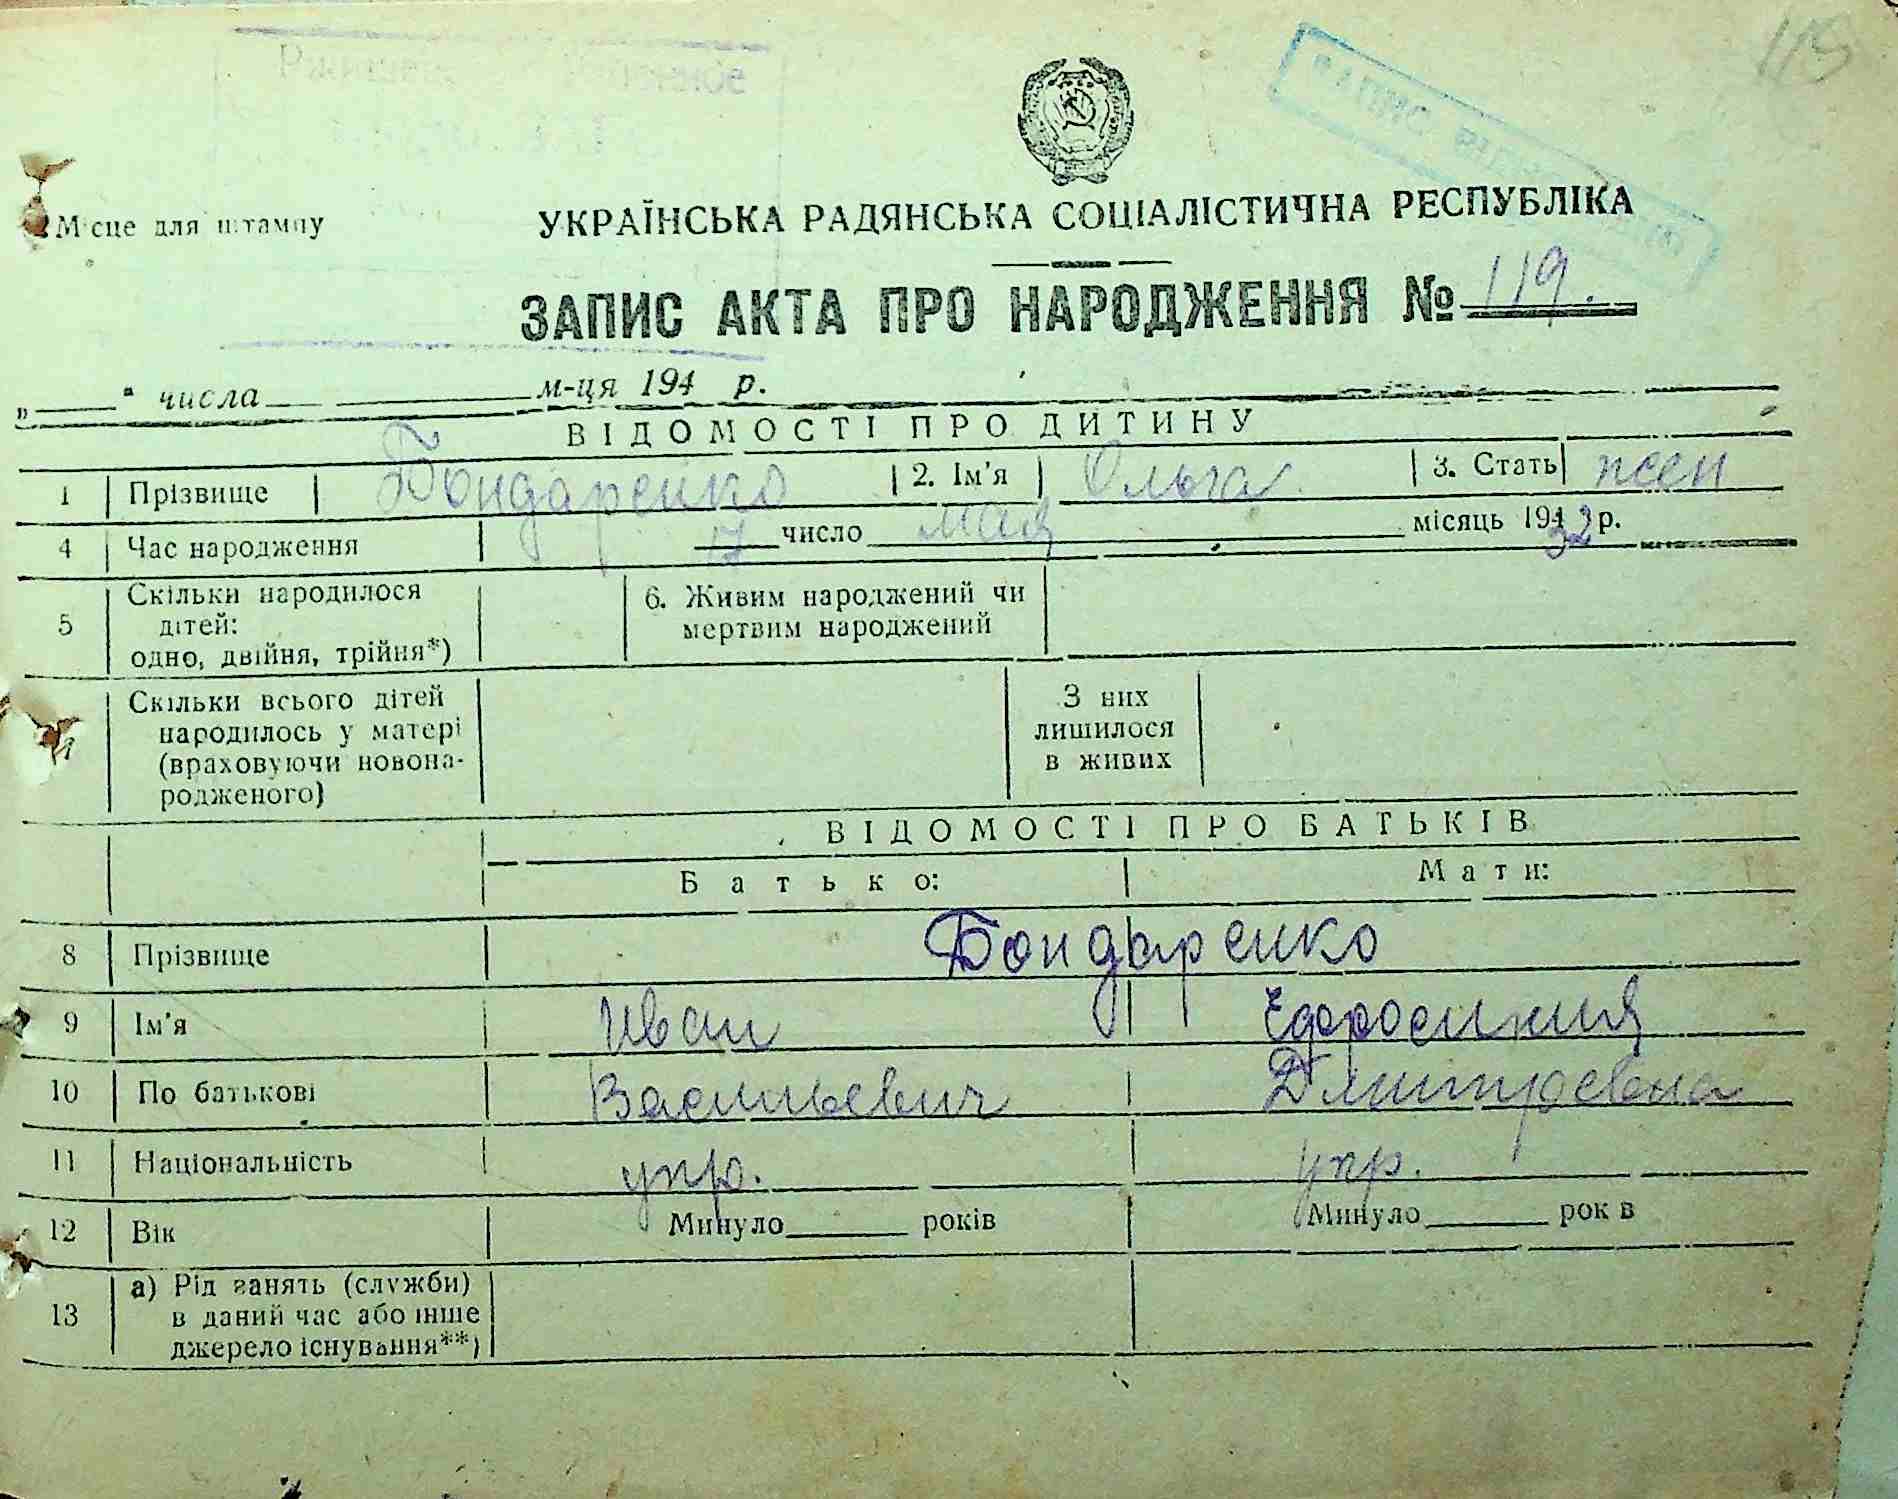 119
Місце для штампу
УКРАЇНСЬКА РАДЯНСЬКА СОЦІАЛІСТИЧНА РЕСПУБЛІКА
ЗАПИС АКТА ПРО НАРОДЖЕННЯ № 119.
„ “ числа м-ця 194 р.
ВІДОМОСТІ ПРО ДИТИНУ
1 Прізвище Бондаренко 2. Ім'я Ольга 3. Стать жен
4 Час народження 17 число мая місяць 1932 р.
5 Скільки народилося дітей: одно, двійня, трійня*) 6. Живим народжений чи мертвим народжений
Скільки всього дітей народилось у матері (враховуючи новонародженого) З них лишилося в живих
ВІДОМОСТІ ПРО БАТЬКІВ
Батько: Мати:
8 Прізвище Бондаренко
9 Ім'я Иван Ефросиния
10 По батькові Васильевич Дмитровна
11 Національність укр. укр.
12 Вік Минуло років Минуло рок в
13 а) Рід занять (служби) в даний час або інше джерело існування**)